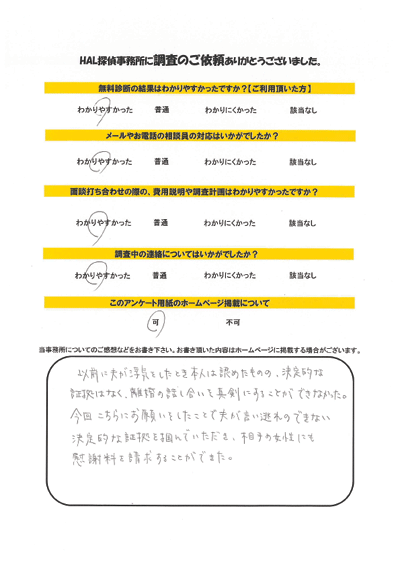 HAL探偵事務所に調査のご依頼ありがとうございました。
無料診断の結果はわかりやすかったですか？【ご利用頂いた方】
わかりやすかった 普通 わかりにくかった 該当なし
メールやお電話の相談員の対応はいかがでしたか？
わかりやすかった 普通 わかりにくかった 該当なし
面談打ち合わせの際の、費用説明や調査計画はわかりやすかったですか？
わかりやすかった 普通 わかりにくかった 該当なし
調査中の連絡についてはいかがでしたか？
わかりやすかった 普通 わかりにくかった 該当なし
このアンケート用紙のホームページ掲載について
可 不可
当事務所についてのご感想などをお書き下さい。お書き頂いた内容はホームページに掲載する場合がございます。
以前に夫が浮気をしたとき本人は認めたものの、決定的な
証拠はなく、離婚の話し合いを真剣にすることができなかった。
今回こちらにお願いをしたことで夫が言い逃れのできない
決定的な証拠を掴んでいただき、相手の女性にも
慰謝料を請求することができた。